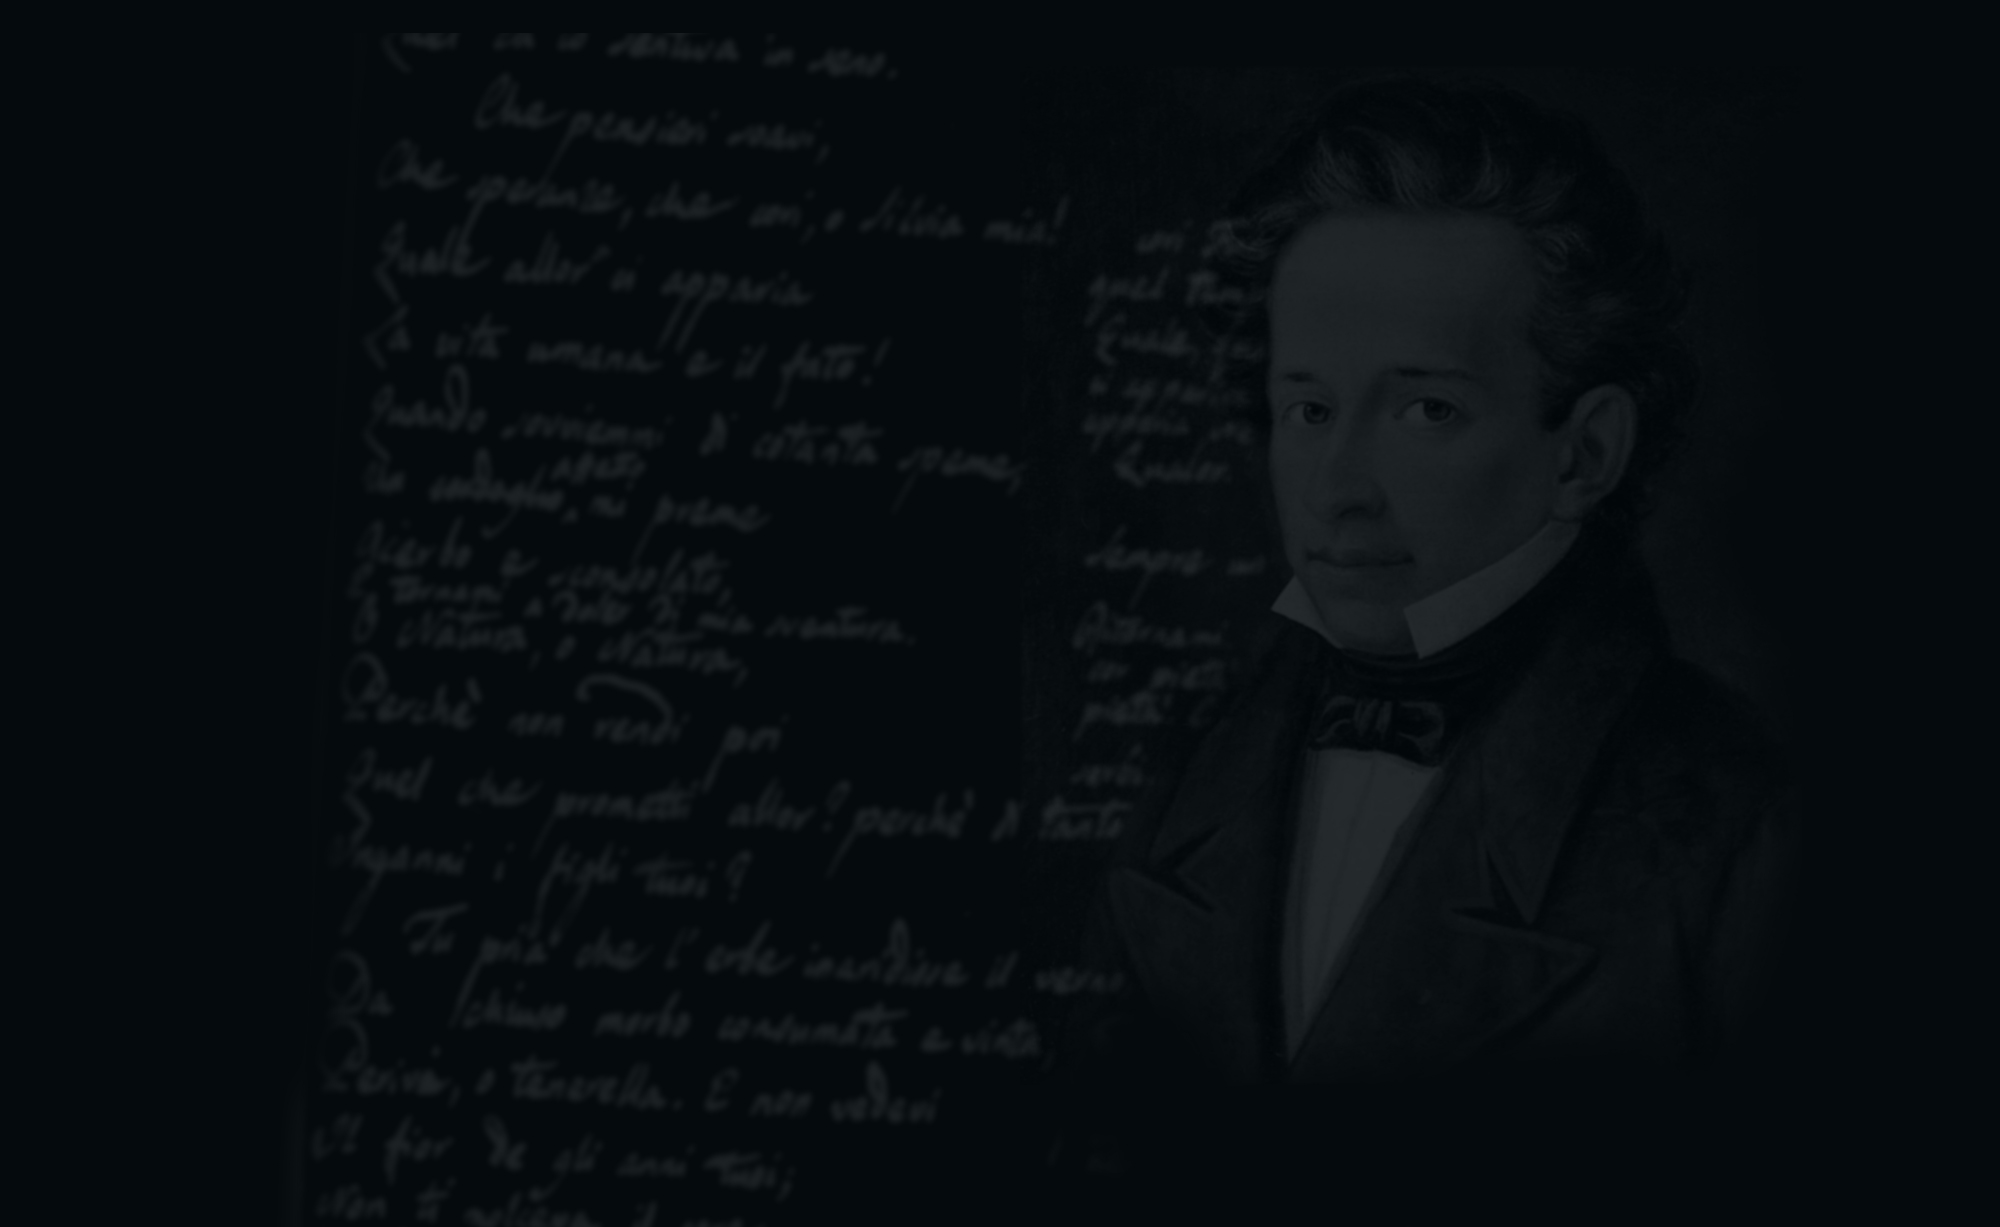 Quel ch'io sentiva in seno.
Che pensieri soavi,
Che speranze, che cori, o Silvia mia!
Quale allor ci apparia
La vita umana e il fato!
Quando sovviemmi di cotanta speme,
affetto
Un cordoglio, mi preme
Acerbo e sconsolato,
E tornami a doler di mia sventura.
O Natura, o Natura,
Perchè non rendi poi
Quel che prometti allor? perchè di tanto
Inganni i figli tuoi?
Tu pria che l'erbe inaridisse il verno
Da chiuso morbo consumata e vinta,
Perivi, o tenerella. E non vedevi
Il fior de gli anni tuoi;
Non ti molceva il core
cori
quel temp
Quale,
ci apparia
apparia
Qualor.
Sempre
Ritornami
cor pietà
pietà.